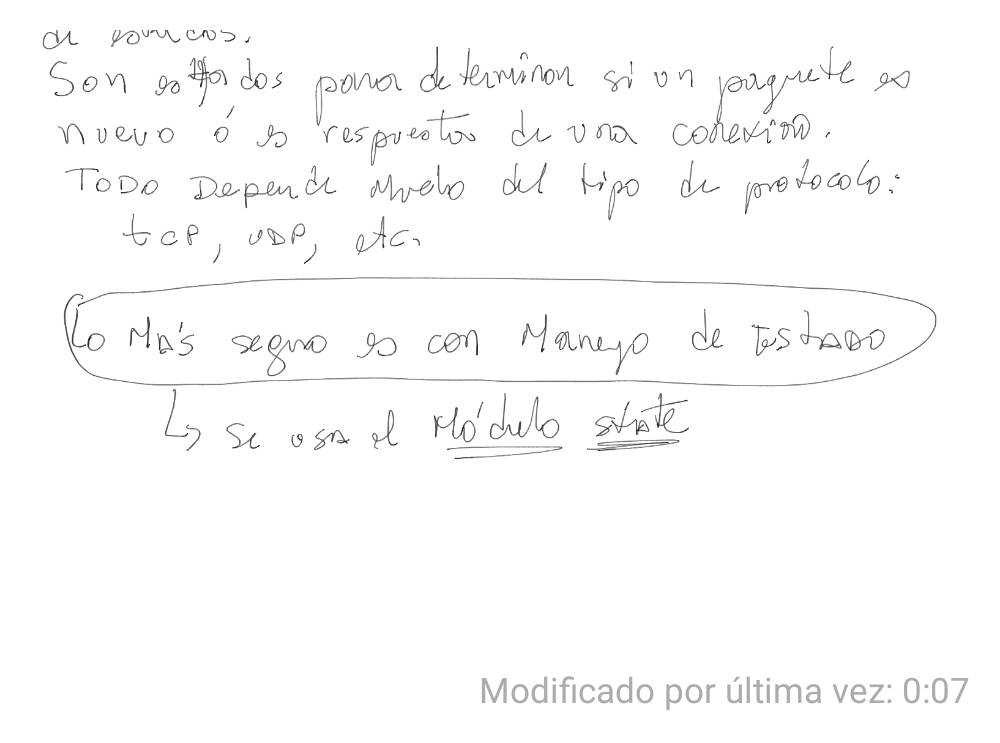 de
Son estados para determinar si un paquete es
nuevo ó es respuesta de una conexión.
TODO Depende mucho del tipo de protocolo:
tcP, UDP, etc.
Lo MÁS seguro es con Manejo de ESTADO
↳ Se usa el Módulo stAtE
Modificado por última vez: 0:07